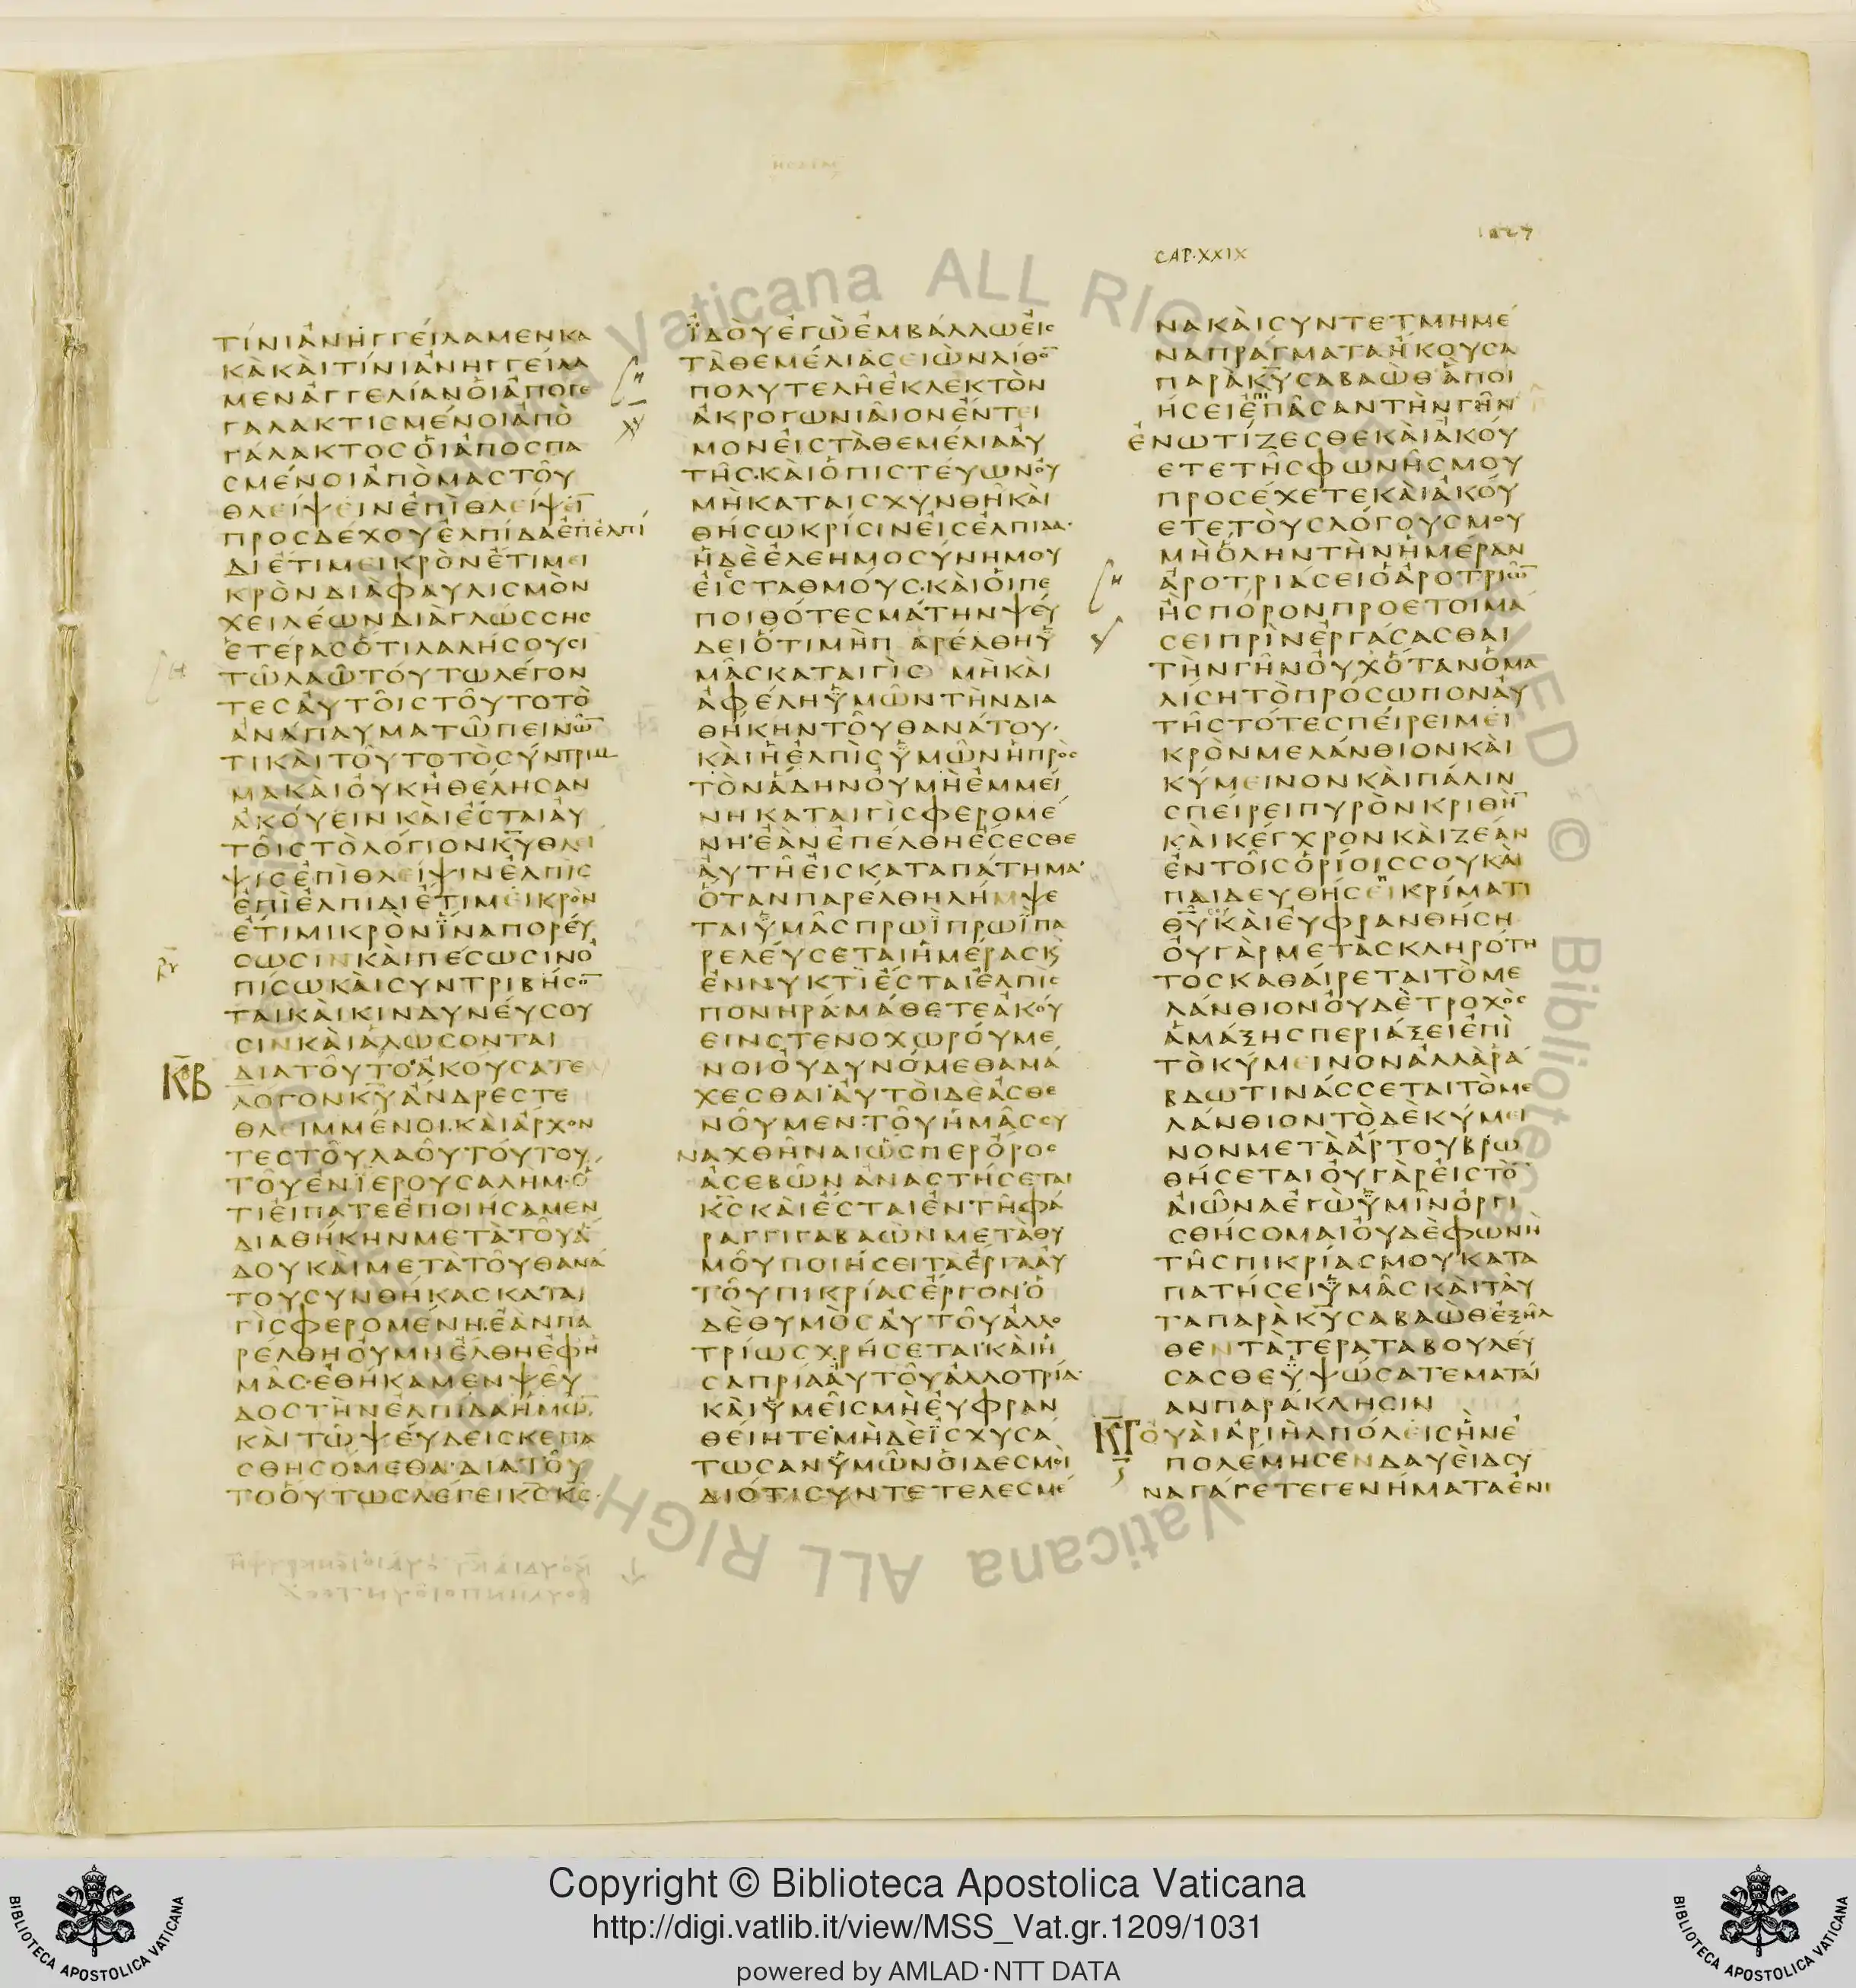 1027
CAP·XXIX
ΤΊΝΙἈΝΗΓΓΕΊΛΑΜΕΝΚΑ
ΚᾺΚΑῚΤΊΝΙἈΝΗΓΓΕΊΛΑ
ΜΕΝἈΓΓΕΛΊΑΝΟἹἈΠΟΓΕ
ΓΑΛΑΚΤΙΣΜΈΝΟΙἈΠῸ
ΓΆΛΑΚΤΟΣΟἹἈΠΟΣΠΑ
ΣΜΈΝΟΙἈΠῸΜΑΣΤΟΥ͂
ΘΛΕΊΨΕΙΝΕΠῚΘΛΕΊΨΙ̅
ΠΡΟΣΔΈΧΟΥἘΛΠΊΔΑἘΠἘΛΠΊ
ΔΙἜΤΙΜΕΙΚΡῸΝἜΤΙΜΕΙ
ΚΡῸΝΔΙᾺΦΑΥΛΙΣΜῸΝ
ΧΕΙΛΈΩΝΔΙᾺΓΛΏΣΣΗΣ
ἙΤΈΡΑΣὍΤΙΛΑΛΉΣΟΥΣΙ
ΤΩ͂ΛΑΩ͂ΤΟΎΤΩΛΈΓΟΝ
ΤΕΣΑΥΤΟΙ͂ΣΤΟΥ͂ΤΟΤῸ
ἈΝΆΠΑΥΜΑΤΩ͂ΠΕΙΝΩ̅
ΤΙΚΑῚΤΟΥ͂ΤΟΤῸΣΎΝΤΡΙΜ
ΜΑΚΑῚΟΥΚΗΘΈΛΗΣΑΝ
ἈΚΟΎΕΙΝΚΑῚἜΣΤΑΙΑΥ
ΤΟΙ͂ΣΤῸΛΌΓΙΟΝΚ̅Υ̅ΘΛΕΙ
ΨΙΣἘΠῚΘΛΕΊΨΙΝἘΛΠῚΣ
ἘΠῚἘΛΠΙΔΙἜΤΙΜΕΙΚΡῸΝ
ἜΤΙΜΙΚΡῸΝΪ́ΝΑΠΟΡΕΎ
ΣΩΣΙΝΚΑῚΠΈΣΩΣΙΝὈ
ΠΊΣΩΚΑῚΣΥΝΤΡΙΒΉΣΟ̅
ΤΑΙΚΑῚΚΙΝΔΥΝΕΎΣΟΥ
ΣΙΝΚΑῚἉΛΏΣΟΝΤΑΙ
Κ̅Β̅
ΔΙΑΤΟΥ͂ΤΟἈΚΟΎΣΑΤΕ
ΛΌΓΟΝΚ̅Υ̅ἌΝΔΡΕΣΤΕ
ΘΛΕΙΜΜΈΝΟΙ·ΚΑῚἌΡΧΟΝ
ΤΕΣΤΟΥ͂ΛΑΟΥ͂ΤΟΎΤΟΥ
ΤΟΥ͂ἘΝΪΕΡΟΥΣΑΛΗΜ·Ὅ
ΤΙΕἼΠΑΤΕἘΠΟΙΉΣΑΜΕΝ
ΔΙΑΘΉΚΗΝΜΕΤᾺΤΟΥ͂Ἅ
ΔΟΥΚΑῚΜΕΤᾺΤΟΥ͂ΘΑΝΆ
ΤΟΥΣΥΝΘΉΚΑΣΚΑΤΑΙ
ΓῚΣΦΕΡΟΜΈΝΗ·ἘᾺΝΠΑ
ΡΈΛΘΗΟΥΜΗἜΛΘΗἘΦΗ
ΜΑ͂Σ·ἘΘΉΚΑΜΕΝΨΕΥ͂
ΔΟΣΤΗΝἘΛΠΙΔΑΗΜΩ̅
ΚΑῚΤΩ͂ΨΕΎΔΕΙΣΚΕΠΑ
ΣΘΗΣΌΜΕΘΑ·ΔΙΑΤΟΥ͂
ΤΟΟΥΤΩΣΛΈΓΕΙΚ̅Σ̅Κ̅Σ̅
ΪΔΟΥἘΓΩἘΜΒΆΛΛΩΕΙΣ
ΤᾺΘΕΜΈΛΙΑΣΕΙΩΝΛΙΘΟ̅
ΠΟΛΥΤΕΛΗ͂ἘΚΛΕΚΤῸΝ
ἈΚΡΟΓΩΝΙΑΙ͂ΟΝἜΝΤΕΙ
ΜΟΝΕΙΣΤᾺΘΕΜΈΛΙΑΑΥ
ΤΗ͂Σ·ΚΑῚὉΠΙΣΤΕΎΩΝΟΥ
ΜῊΚΑΤΑΙΣΧΥΝΘΗ͂ΚΑῚ
ΘΉΣΩΚΡΊΣΙΝΕΙΣἘΛΠΙΔΑ·
ἩΔῈἘΛΕΗΜΟΣΎΝΗΜΟΥ
ΕΙΣΣΤΑΘΜΟΎΣ·ΚΑῚΟἹΠΕ
ΠΟΙΘΌΤΕΣΜΆΤΗΝΨΕΎ
ΔΕΙὍΤΙΜῊΠΑΡΈΛΘΗΫ
ΜΑ͂ΣΚΑΤΑΙΓῚΣΜῊΚΑῚ
ἈΦΈΛΗΫΜΩ͂ΝΤῊΝΔΙΑ
ΘΉΚΗΝΤΟΥ͂ΘΑΝΆΤΟΥ·
ΚΑῚἩἘΛΠῚΣΫΜΩ͂ΝἩΠΡῸΣ
ΤῸΝἍΔΗΝΟΥΜῊἘΜΜΕΊ
ΝΗΚΑΤΑΙΓῚΣΦΕΡΟΜΈ
ΝΗἘᾺΝἘΠΈΛΘΗἜΣΕΣΘΕ
ΑΥΤΗ͂ΕΙΣΚΑΤΑΠΆΤΗΜΑ·
ὍΤΑΝΠΑΡΈΛΘΗΛΉΜΨΕ
ΤΑΙΫΜΑ͂ΣΠΡΩΪΠΡΩΪΠΑ
ΡΕΛΕΎΣΕΤΑΙἩΜΈΡΑΣΚ
ἘΝΝΥΚΤῚἜΣΤΑΙἘΛΠῚΣ
ΠΟΝΗΡΆ·ΜΆΘΕΤΕἈΚΟΎ
ΕΙΝΣΤΕΝΟΧΩΡΟΎΜΕ
ΝΟΙΟΥΔΥΝΌΜΕΘΑΜΆ
ΧΕΣΘΑΙΑΥΤΟῚΔΕἈΣΘΕ
ΝΟΥ͂ΜΕΝ·ΤΟΥ͂ἩΜΑ͂ΣΣΥ
ΝΑΧΘΗ͂ΝΑΙὭΣΠΕΡὌΡΟΣ
ἈΣΕΒΩ͂ΝἈΝΑΣΤΉΣΕΤΑΙ
Κ̅Σ̅ΚΑῚἜΣΤΑΙἘΝΤΗ͂ΦΆ
ΡΑΓΓΙΓΑΒΑΩΝΜΕΤᾺΘΥ
ΜΟΥ͂ΠΟΙΉΣΕΙΤΑἜΡΓΑΑΥ
ΤΟΥ͂ΠΙΚΡΊΑΣἜΡΓΟΝὉ
ΔῈΘΥΜῸΣΑΥΤΟΥ͂ἈΛΛΟ
ΤΡΊΩΣΧΡΉΣΕΤΑΙΚΑῚἩ
ΣΑΠΡΊΑΑΥΤΟΥ͂ἈΛΛΟΤΡΊΑ
ΚΑῚΫΜΕΙ͂ΣΜῊΕΥΦΡΑΝ
ΘΕΊΗΤΕΜΗΔῈΪΣΧΥΣΆ
ΤΩΣΑΝΫΜΩ͂ΝΟἹΔΕΣΜΟῚ
ΔΙΌΤΙΣΥΝΤΕΤΕΛΕΣΜΈ
ΝΑΚΑῚΣΥΝΤΕΤΜΗΜΈ
ΝΑΠΡΆΓΜΑΤΑἭΚΟΥΣΑ
ΠΑΡᾺΚ̅Υ̅ΣΑΒΑΩΘἋΠΟΙ
ΉΣΕΙἘΠΙΠΑ͂ΣΑΝΤῊΝΓΗ͂Ν
ἘΝΩΤΊΖΕΣΘΕΚΑῚἈΚΟΎ
ΕΤΕΤΗ͂ΣΦΩΝΗ͂ΣΜΟΥ
ΠΡΟΣΈΧΕΤΕΚΑῚἈΚΟΎ
ΕΤΕΤΟῪΣΛΌΓΟΥΣΜΟΥ
ΜῊὍΛΗΝΤῊΝἩΜΈΡΑΝ
ἈΡΟΤΡΙΆΣΕΙὉἈΡΟΤΡΙΩ̅
ἪΣΠΌΡΟΝΠΡΟΕΤΟΙΜΆ
ΣΕΙΠΡῚΝἘΡΓΆΣΑΣΘΑΙ
ΤῊΝΓΗ͂ΝΟΥΧὍΤΑΝὉΜΑ
ΛΊΣΗΤῸΠΡΌΣΩΠΟΝΑΥ
ΤΗ͂ΣΤΌΤΕΣΠΕΊΡΕΙΜΕΙ
ΚΡῸΝΜΕΛΆΝΘΙΟΝΚΑῚ
ΚΎΜΕΙΝΟΝΚΑῚΠΆΛΙΝ
ΣΠΕΊΡΕΙΠΥΡῸΝΚΡΙΘῊ̅
ΚΑῚΚΈΓΧΡΟΝΚΑῚΖΈΑΝ
ἘΝΤΟΙ͂ΣὉΡΊΟΙΣΣΟΥΚΑῚ
ΠΑΙΔΕΥΘΉΣΕΙΚΡΊΜΑΤΙ
Θ̅Υ̅ΚΑῚΕΥΦΡΑΝΘΉΣΗ
ΟΥΓᾺΡΜΕΤᾺΣΚΛΗΡΌΤΗ
ΤΟΣΚΑΘΑΊΡΕΤΑΙΤῸΜΕ
ΛΆΝΘΙΟΝΟΥΔῈΤΡΟΧῸΣ
ἉΜΆΞΗΣΠΕΡΙΆΞΕΙἘΠῚ
ΤῸΚΎΜΕΙΝΟΝἈΛΛᾺΡΆ
ΒΔΩΤΙΝΆΣΣΕΤΑΙΤῸΜΕ
ΛΆΝΘΙΟΝΤῸΔῈΚΎΜΕΙ
ΝΟΝΜΕΤᾺἌΡΤΟΥΒΡΩ
ΘΉΣΕΤΑΙΟΥΓᾺΡΕΙΣΤῸ̅
ΑΙΩ͂ΝΑἘΓῺΫΜΙ͂ΝὈΡΓΙ
ΣΘΉΣΟΜΑΙΟΥΔῈΦΩΝῊ
ΤΗ͂ΣΠΙΚΡΊΑΣΜΟΥΚΑΤΑ
ΠΑΤΉΣΕΙΫΜΑ͂ΣΚΑῚΤΑΥ
ΤΑΠΑΡᾺΚ̅Υ̅ΣΑΒΑΩΘἘΞΗ͂Λ
ΘΕΝΤᾺΤΈΡΑΤΑΒΟΥΛΕΎ
ΣΑΣΘΕΫΨΏΣΑΤΕΜΑΤΑΊ
ΑΝΠΑΡΆΚΛΗΣΙΝ
Κ̅Γ̅
ΟΥΑῚἈΡΙῊΛΠΌΛΕΙΣἫΝἘ
ΠΟΛΈΜΗΣΕΝΔΑΥΕῚΔΣΥ
ΝΑΓΆΓΕΤΕΓΕΝΉΜΑΤΑἘΝΙ
Copyright © Biblioteca Apostolica Vaticana
http://digi.vatlib.it/view/MSS_Vat.gr.1209/1031
powered by AMLAD·NTT DATA
BIBLIOTECA APOSTOLICA VATICANA
BIBLIOTECA APOSTOLICA VATICANA